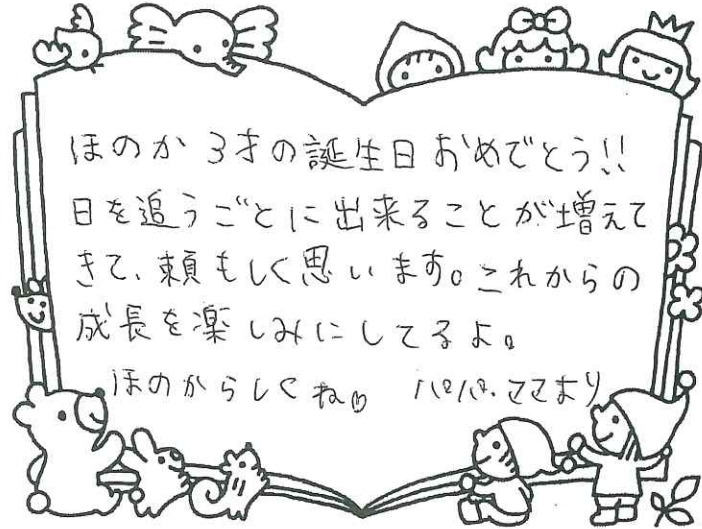 ほのか 3才の誕生日おめでとう!!
日を追うごとに出来ることが増えて
きて、頼もしく思います。これからの
成長を楽しみにしてるよ。
ほのからしくね♡ パパ・ママより